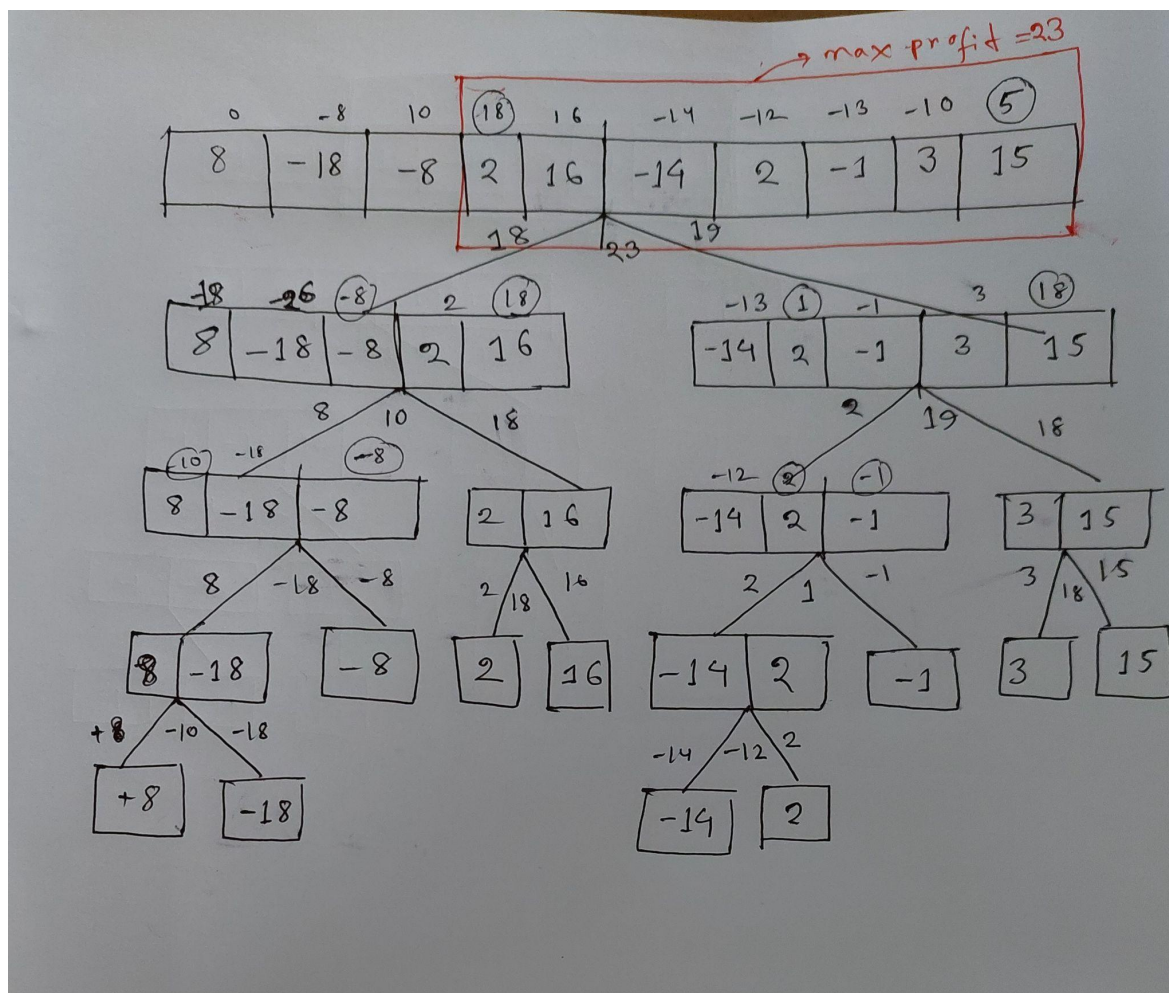 → max profit = 23
0 -8 10 18 16 -14 -12 -13 -10 5
8 -18 -8 2 16 -14 2 -1 3 15
18 23 19
-18 -26 -8 2 18 -13 1 -1 3 18
8 -18 -8 2 16 -14 2 -1 3 15
8 10 18 2 19 18
-10 -18 -8 -12 2 -1
8 -18 -8 2 16 -14 2 -1 3 15
8 -18 -8 2 18 16 2 1 -1 3 18 15
8 -18 -8 2 16 -14 2 -1 3 15
+8 -10 -18 -14 -12 2
+8 -18 -14 2